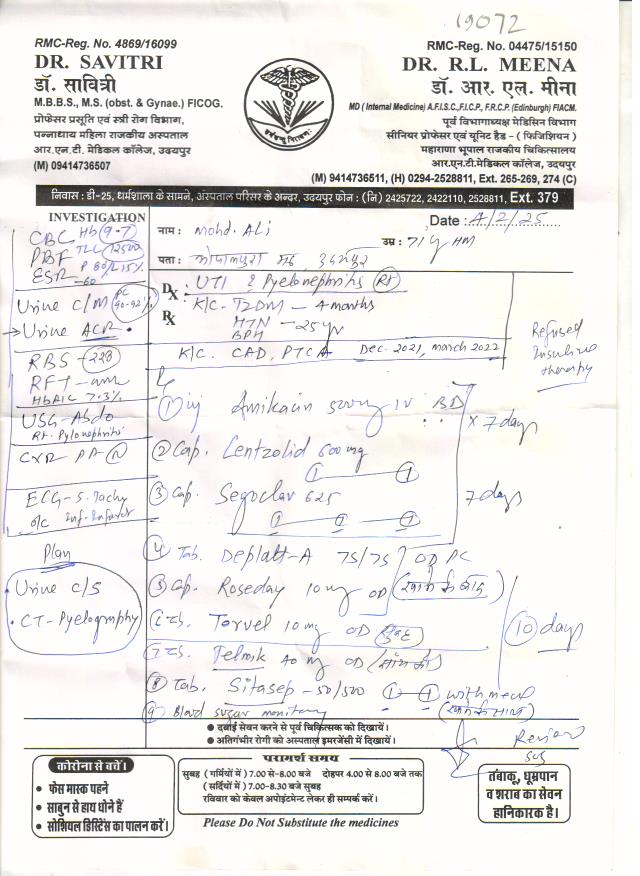 19072
RMC-Reg. No. 4869/16099
DR. SAVITRI
डॉ. सावित्री
M.B.B.S., M.S. (obst. & Gynae.) FICOG.
प्रोफेसर प्रसूति एवं स्त्री रोग विभाग,
पन्नाधाय महिला राजकीय अस्पताल
आर.एन.टी. मेडिकल कॉलेज, उदयपुर
(M) 09414736507
RMC-Reg. No. 04475/15150
DR. R.L. MEENA
डॉ. आर. एल. मीना
MD ( Internal Medicine) A.F.I.S.C.,F.I.C.P., F.R.C.P. (Edinburgh) FIACM.
पूर्व विभागाध्यक्ष मेडिसिन विभाग
सीनियर प्रोफेसर एवं यूनिट हैड - ( फिजिशियन )
महाराणा भूपाल राजकीय चिकित्सालय
आर.एन.टी.मेडिकल कॉलेज, उदयपुर
(M) 9414736511, (H) 0294-2528811, Ext. 265-269, 274 (C)
निवास : डी-25, धर्मशाला के सामने, अंस्पताल परिसर के अन्दर, उदयपुर फोन : (नि) 2425722, 2422110, 2528811, Ext. 379
INVESTIGATION
CBC Hb (9-7)
PBF TLC 12500
ESR P 80/L15%
-60
Urine C/M PC 90-92%
→ Urine ACR.
RBS - 223
RFT -
HbA1C 7.3%
USG - Abdo
Rt. Pylonephritis
CXR PA - N
ECG - S. Tachy
o/c Inf-Infarct
Plan
• Urine c/s
• CT-Pyelography
Date : 4/2/25
नाम : Mohd. Ali
उम्र : 71 y HM
पता :
Dx : UTI & Pyelonephritis (Rt)
Rx K/C - T2DM - 4 months
HTN - 25 yr
BPH
K/C. CAD, PTCA Dec. 2021, march 2022
Refused Insuline therapy
① inj Amikacin 500mg IV BD x 7 days
② Cap. Lentzolid 600 mg
1 1
③ Cap. Segoclav 625 7 days
1 1 1
④ Tab. Deplatt-A 75/75 OD PC
⑤ Cap. Roseday 10mg OD (खाने के बाद)
Tab. Torvel 10 mg OD (सुबह) 10 days
Tab. Telmik 40 mg OD
⑧ Tab. Sitasep - 50/500 1 1 with meal
⑨ Blood sugar monitory
Review
SOS
● दवाई सेवन करने से पूर्व चिकित्सक को दिखायें।
● अतिगंभीर रोगी को अस्पताल इमरजेंसी में दिखायें।
कोरोना से बचें।
• फेस मास्क पहने
• साबुन से हाथ धोने हैं
• सोशियल डिस्टेंस का पालन करें।
परामर्श समय
सुबह ( गर्मियों में ) 7.00 से-8.00 बजे दोहपर 4.00 से 8.00 बजे तक
( सर्दियों में ) 7.00-8.30 बजे सुबह
रविवार को केवल अपोइंटमेन्ट लेकर ही सम्पर्क करें।
Please Do Not Substitute the medicines
तंबाकू, धूम्रपान
व शराब का सेवन
हानिकारक है।